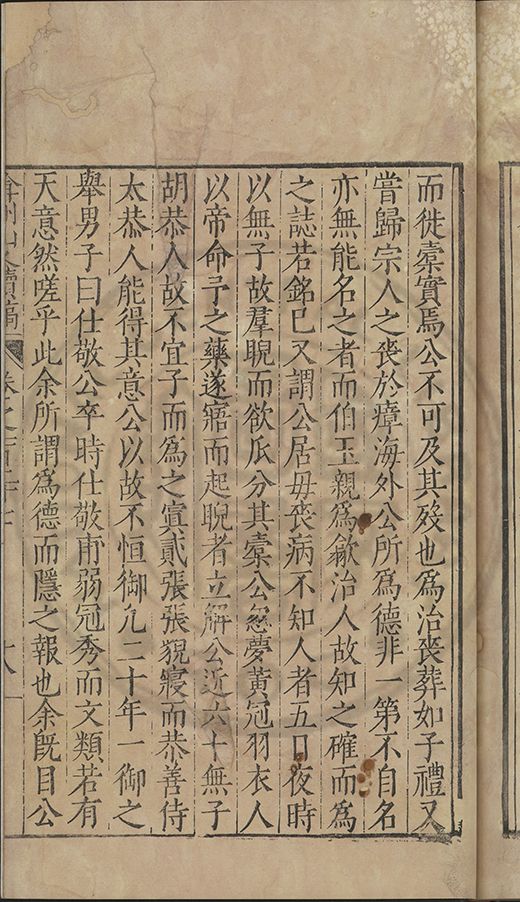 而徙橐實焉公不可及其歿也爲治喪葬如子禮又
嘗歸宗人之喪於瘴海外公所爲德非一第不自名
亦無能名之者而伯玉親爲歙治人故知之確而爲
之誌若銘已又謂公居毋喪病不知人者五日夜時
以無子故羣睨而欲瓜分其橐公忽夢黃冠羽衣人
以帝命予之藥遂寤而起睨者立解公近六十無子
胡恭人故不宜子而爲之寘貳張張猊寢而恭善侍
太恭人能得其意公以故不恒御凢二十年一御之
舉男子曰仕敬公卒時仕敬甫弱冠秀而文類若有
天意然嗟乎此余所謂爲德而隱之報也余旣目公
弇州山人續稿
卷之一百二十七
十八